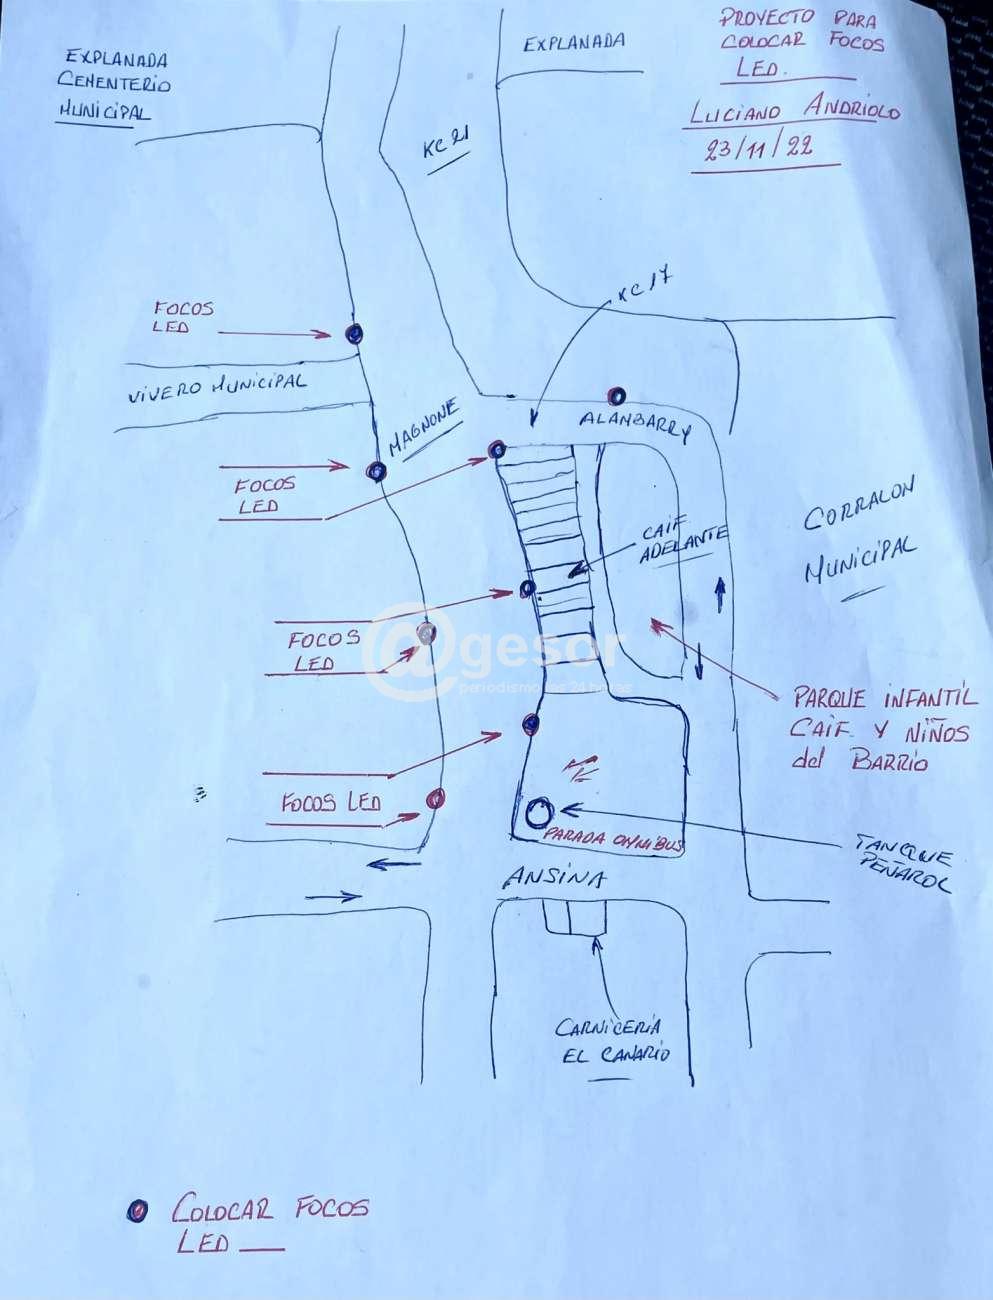 EXPLANADA
CEMENTERIO
MUNICIPAL
EXPLANADA
PROYECTO PARA
COLOCAR FOCOS
LED.
LUCIANO ANDRIOLO
23/11/22
KC 21
KC 17
FOCOS
LED
VIVERO MUNICIPAL
MAGNONE
ALANBARRY
FOCOS
LED
CAIF
ADELANTE
CORRALON
MUNICIPAL
FOCOS
LED
@gesor
periodismo las 24 horas
PARQUE INFANTIL
CAIF Y NIÑOS
del BARRIO
FOCOS LED
PARADA OMNIBUS
TANQUE
PEÑAROL
ANSINA
CARNICERIA
EL CANARIO
COLOCAR FOCOS
LED